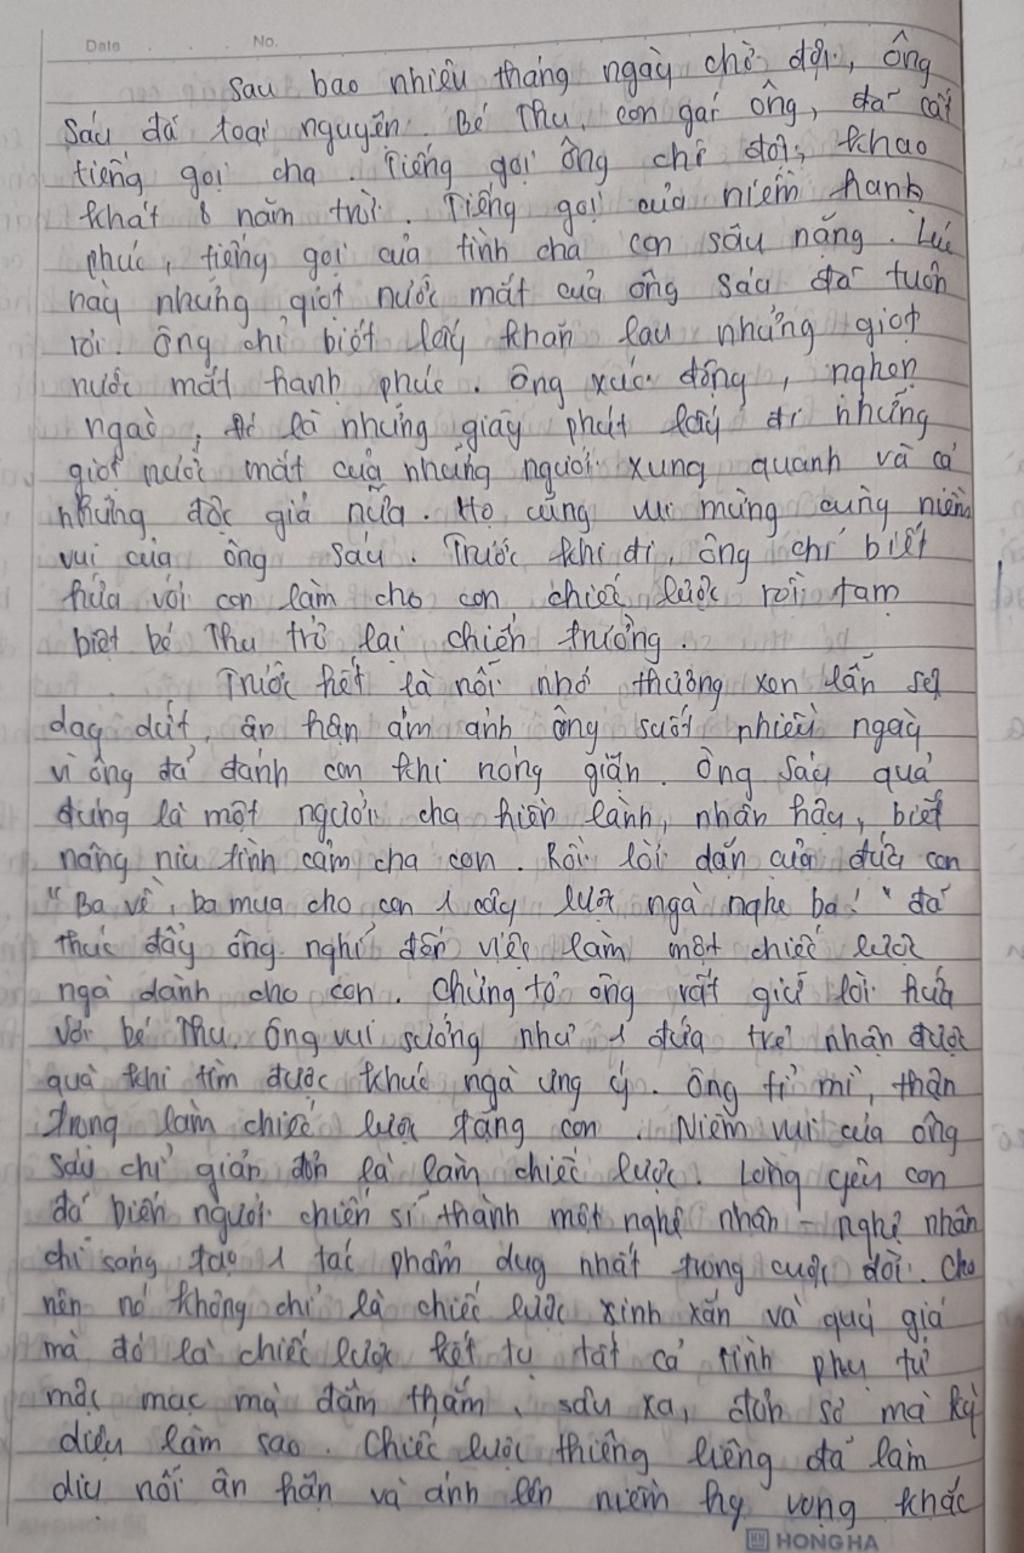 Date No.
Sau bao nhiêu tháng ngày chờ đợi, ông
Sáu đã toại nguyện. Bé Thu, con gái ông, đã cất
tiếng gọi cha. Tiếng gọi ông chờ đợi, khao
khát 8 năm trời. Tiếng gọi của niềm hạnh
phúc, tiếng gọi của tình cha con sâu nặng. Lúc
này những giọt nước mắt của ông Sáu đã tuôn
rơi. Ông chỉ biết lấy khăn lau những giọt
nước mắt hạnh phúc. Ông xúc động, nghẹn
ngào, đó là những giây phút lấy đi những
giọt nước mắt của những người xung quanh và cả
những độc giả nữa. Họ cũng vui mừng cùng niềm
vui của ông Sáu. Trước khi đi, ông chỉ biết
hứa với con làm cho con chiếc lược rồi tạm
biệt bé Thu trở lại chiến trường.
Trước hết là nỗi nhớ thương xen lẫn sự
day dứt, ân hận ám ảnh ông suốt nhiều ngày
vì ông đã đánh con khi nóng giận. Ông Sáu quả
đúng là một người cha hiền lành, nhân hậu, biết
nâng niu tình cảm cha con. Rồi lời dặn của đứa con
"Ba về, ba mua cho con 1 cây lược ngà nghe ba!" đã
thúc đẩy ông nghĩ đến việc làm một chiếc lược
ngà dành cho con. Chứng tỏ ông rất giữ lời hứa
với bé Thu. Ông vui sướng như 1 đứa trẻ nhận được
quà khi tìm được khúc ngà ưng ý. Ông tỉ mỉ, thận
trọng làm chiếc lược tặng con. Niềm vui của ông
Sáu chỉ giản đơn là làm chiếc lược. Lòng yêu con
đã biến người chiến sĩ thành một nghệ nhân - nghệ nhân
chỉ sáng tạo 1 tác phẩm duy nhất trong cuộc đời. Cho
nên nó không chỉ là chiếc lược xinh xắn và quý giá
mà đó là chiếc lược kết tụ tất cả tình phụ tử
mộc mạc mà đằm thắm, sâu xa, đơn sơ mà kỳ
diệu làm sao. Chiếc lược thiêng liêng đã làm
dịu nỗi ân hận và ánh lên niềm hy vọng khắc
HONG HA